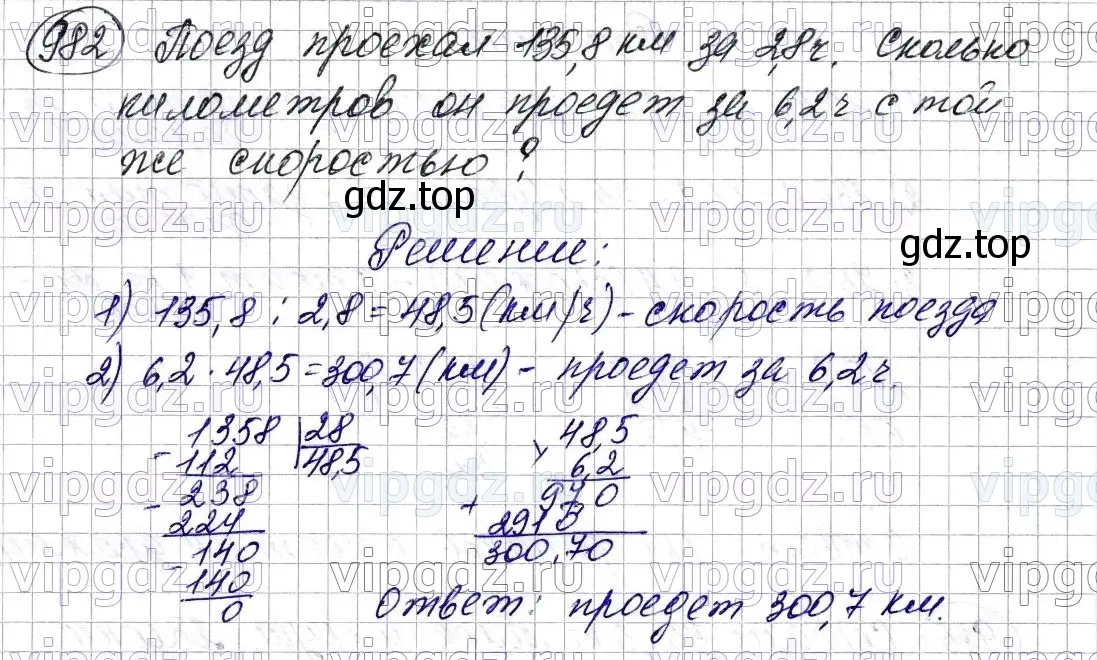 982 Поезд проехал 135,8 км за 2,8 ч. Сколько
километров он проедет за 6,2 ч с той
же скоростью?
gdz.top
Решение:
gdz.top
1) 135,8 : 2,8 = 48,5 (км/ч) - скорость поезда
2) 6,2 · 48,5 = 300,7 (км) - проедет за 6,2 ч.
1358 28
- 112 48,5
238
- 224
140
- 140
0
48,5
× 6,2
970
+ 2910
300,70
Ответ: проедет 300,7 км.
vipgdz.ru